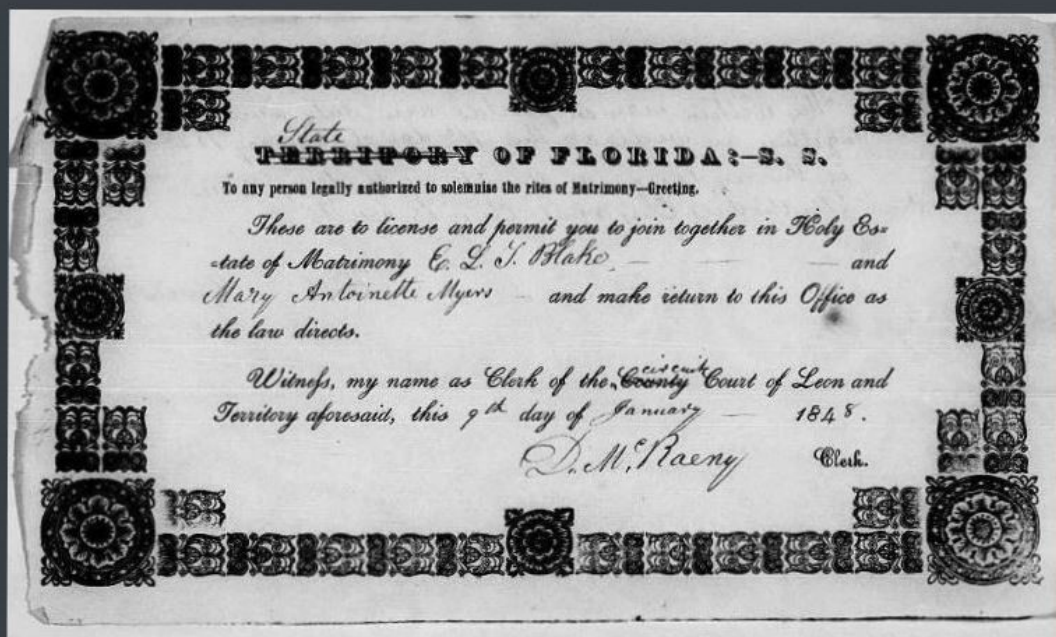 State
TERRITORY OF FLORIDA:—S. S.
To any person legally authorized to solemnise the rites of Matrimony—Greeting.
These are to license and permit you to join together in Holy Es=
=tate of Matrimony E. L. T. Blake — — — and
Mary Antoinette Myers — and make return to this Office as
the law directs.
circuit
Witness, my name as Clerk of the County Court of Leon and
Territory aforesaid, this 9th day of January — 1848.
D. McRaeny Clerk.